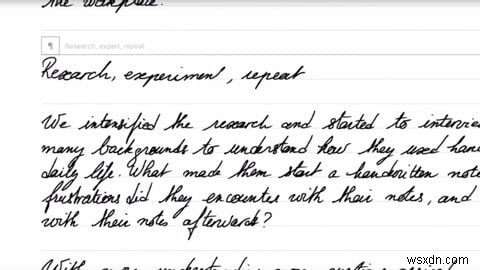 the workplace.
¶ Research, experi, repeat
Research, experiment, repeat
We intensified the research and started to intervie
many backgrounds to understand how they used han
daily life. What made them start a handwritten note
frustrations did they encounter with their notes, and
with their notes afterwards?
With
understanding
wsxdn.com